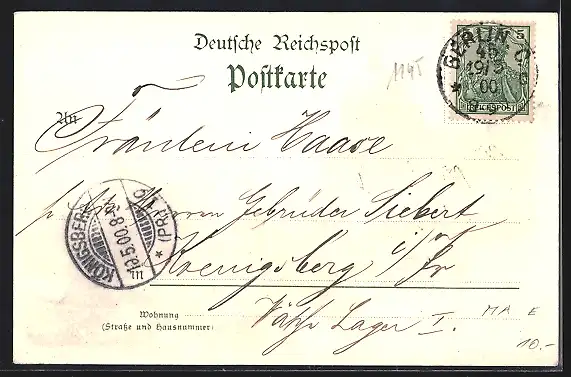 Deutsche Reichspost
Postkarte
1145
BERLIN C
19/5
00
5
REICHSPOST
An
Fräulein Haase
Herren Gebrüder Siebert
in
Koenigsberg i/Pr
KÖNIGSBERG (PR) 1
19.5.00.8-9
Wohnung
(Straße und Hausnummer)
Lager I.
MA E
10.-